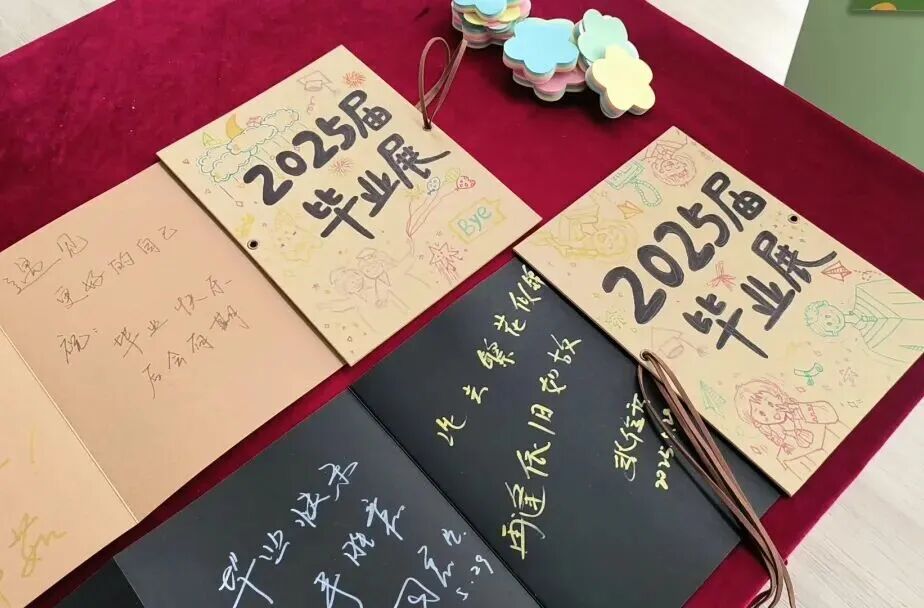 2025届
毕业展
Bye
2025届
毕业展
遇见
更好的自己
祝：毕业快乐
后会有期
此去繁花似锦
再逢依旧如故
2025.5.20
毕业快乐
5.29